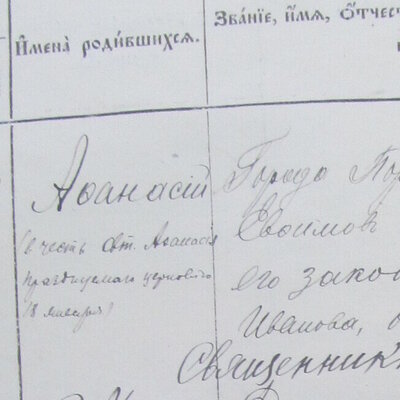 И҆мена̀ роди́вшихсѧ.
Зва́нїе, и҆́мѧ, ѻ҆́тчест
Аѳанасій
(в честь свт. Аѳанасія
празднуемаго церковью
18 января)
Города Пор
Евѳимов
его зако
Иванова,
Священник